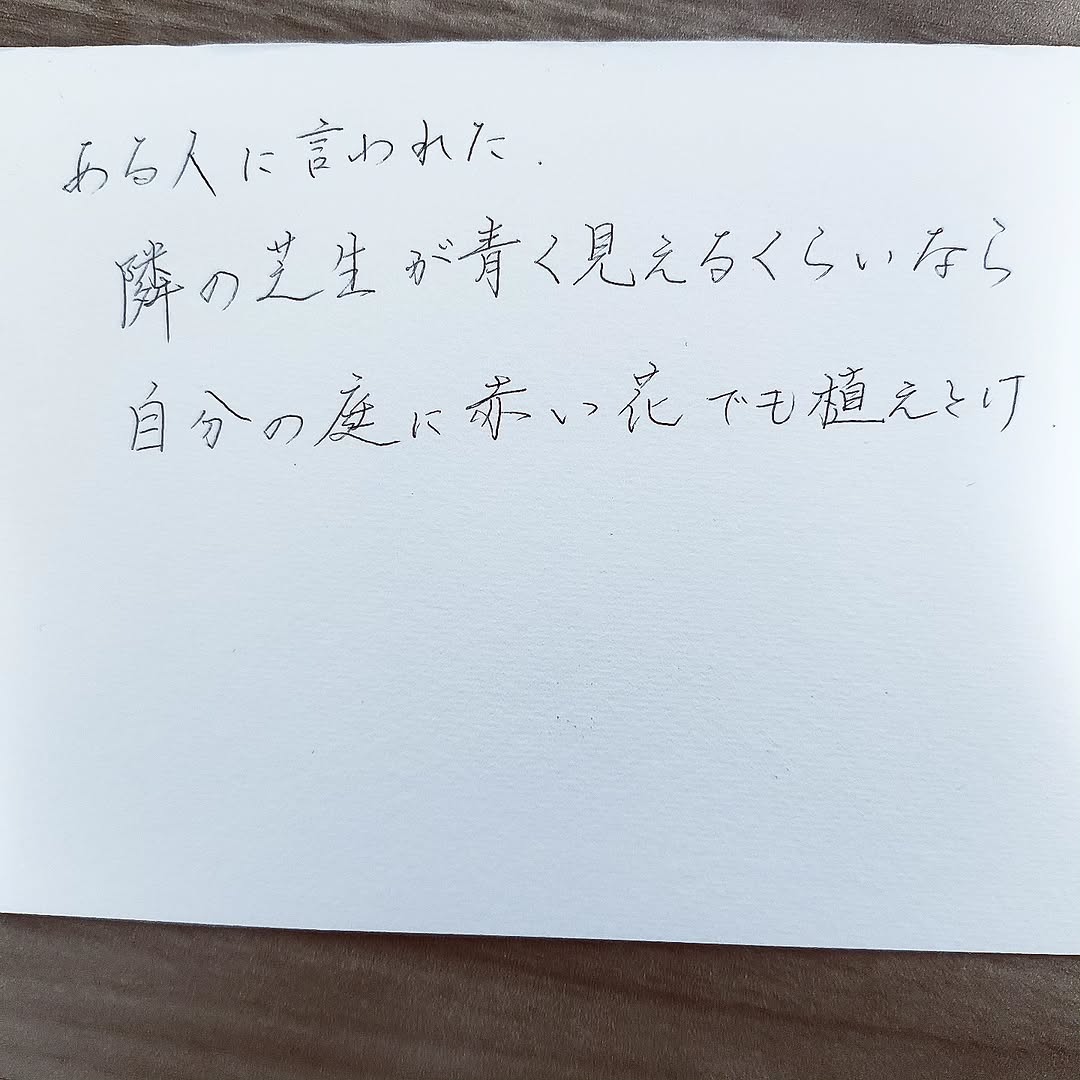 ある人に言われた.
隣の芝生が青く見えるくらいなら
自分の庭に赤い花でも植えとけ.